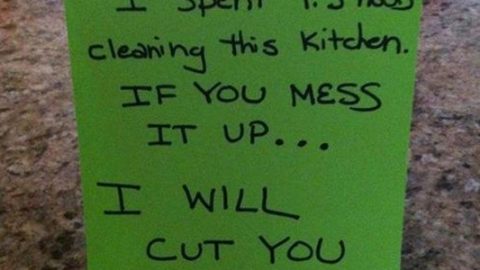 I spent 1.5 hours
cleaning this kitchen.
IF YOU MESS
IT UP...
I WILL
CUT YOU